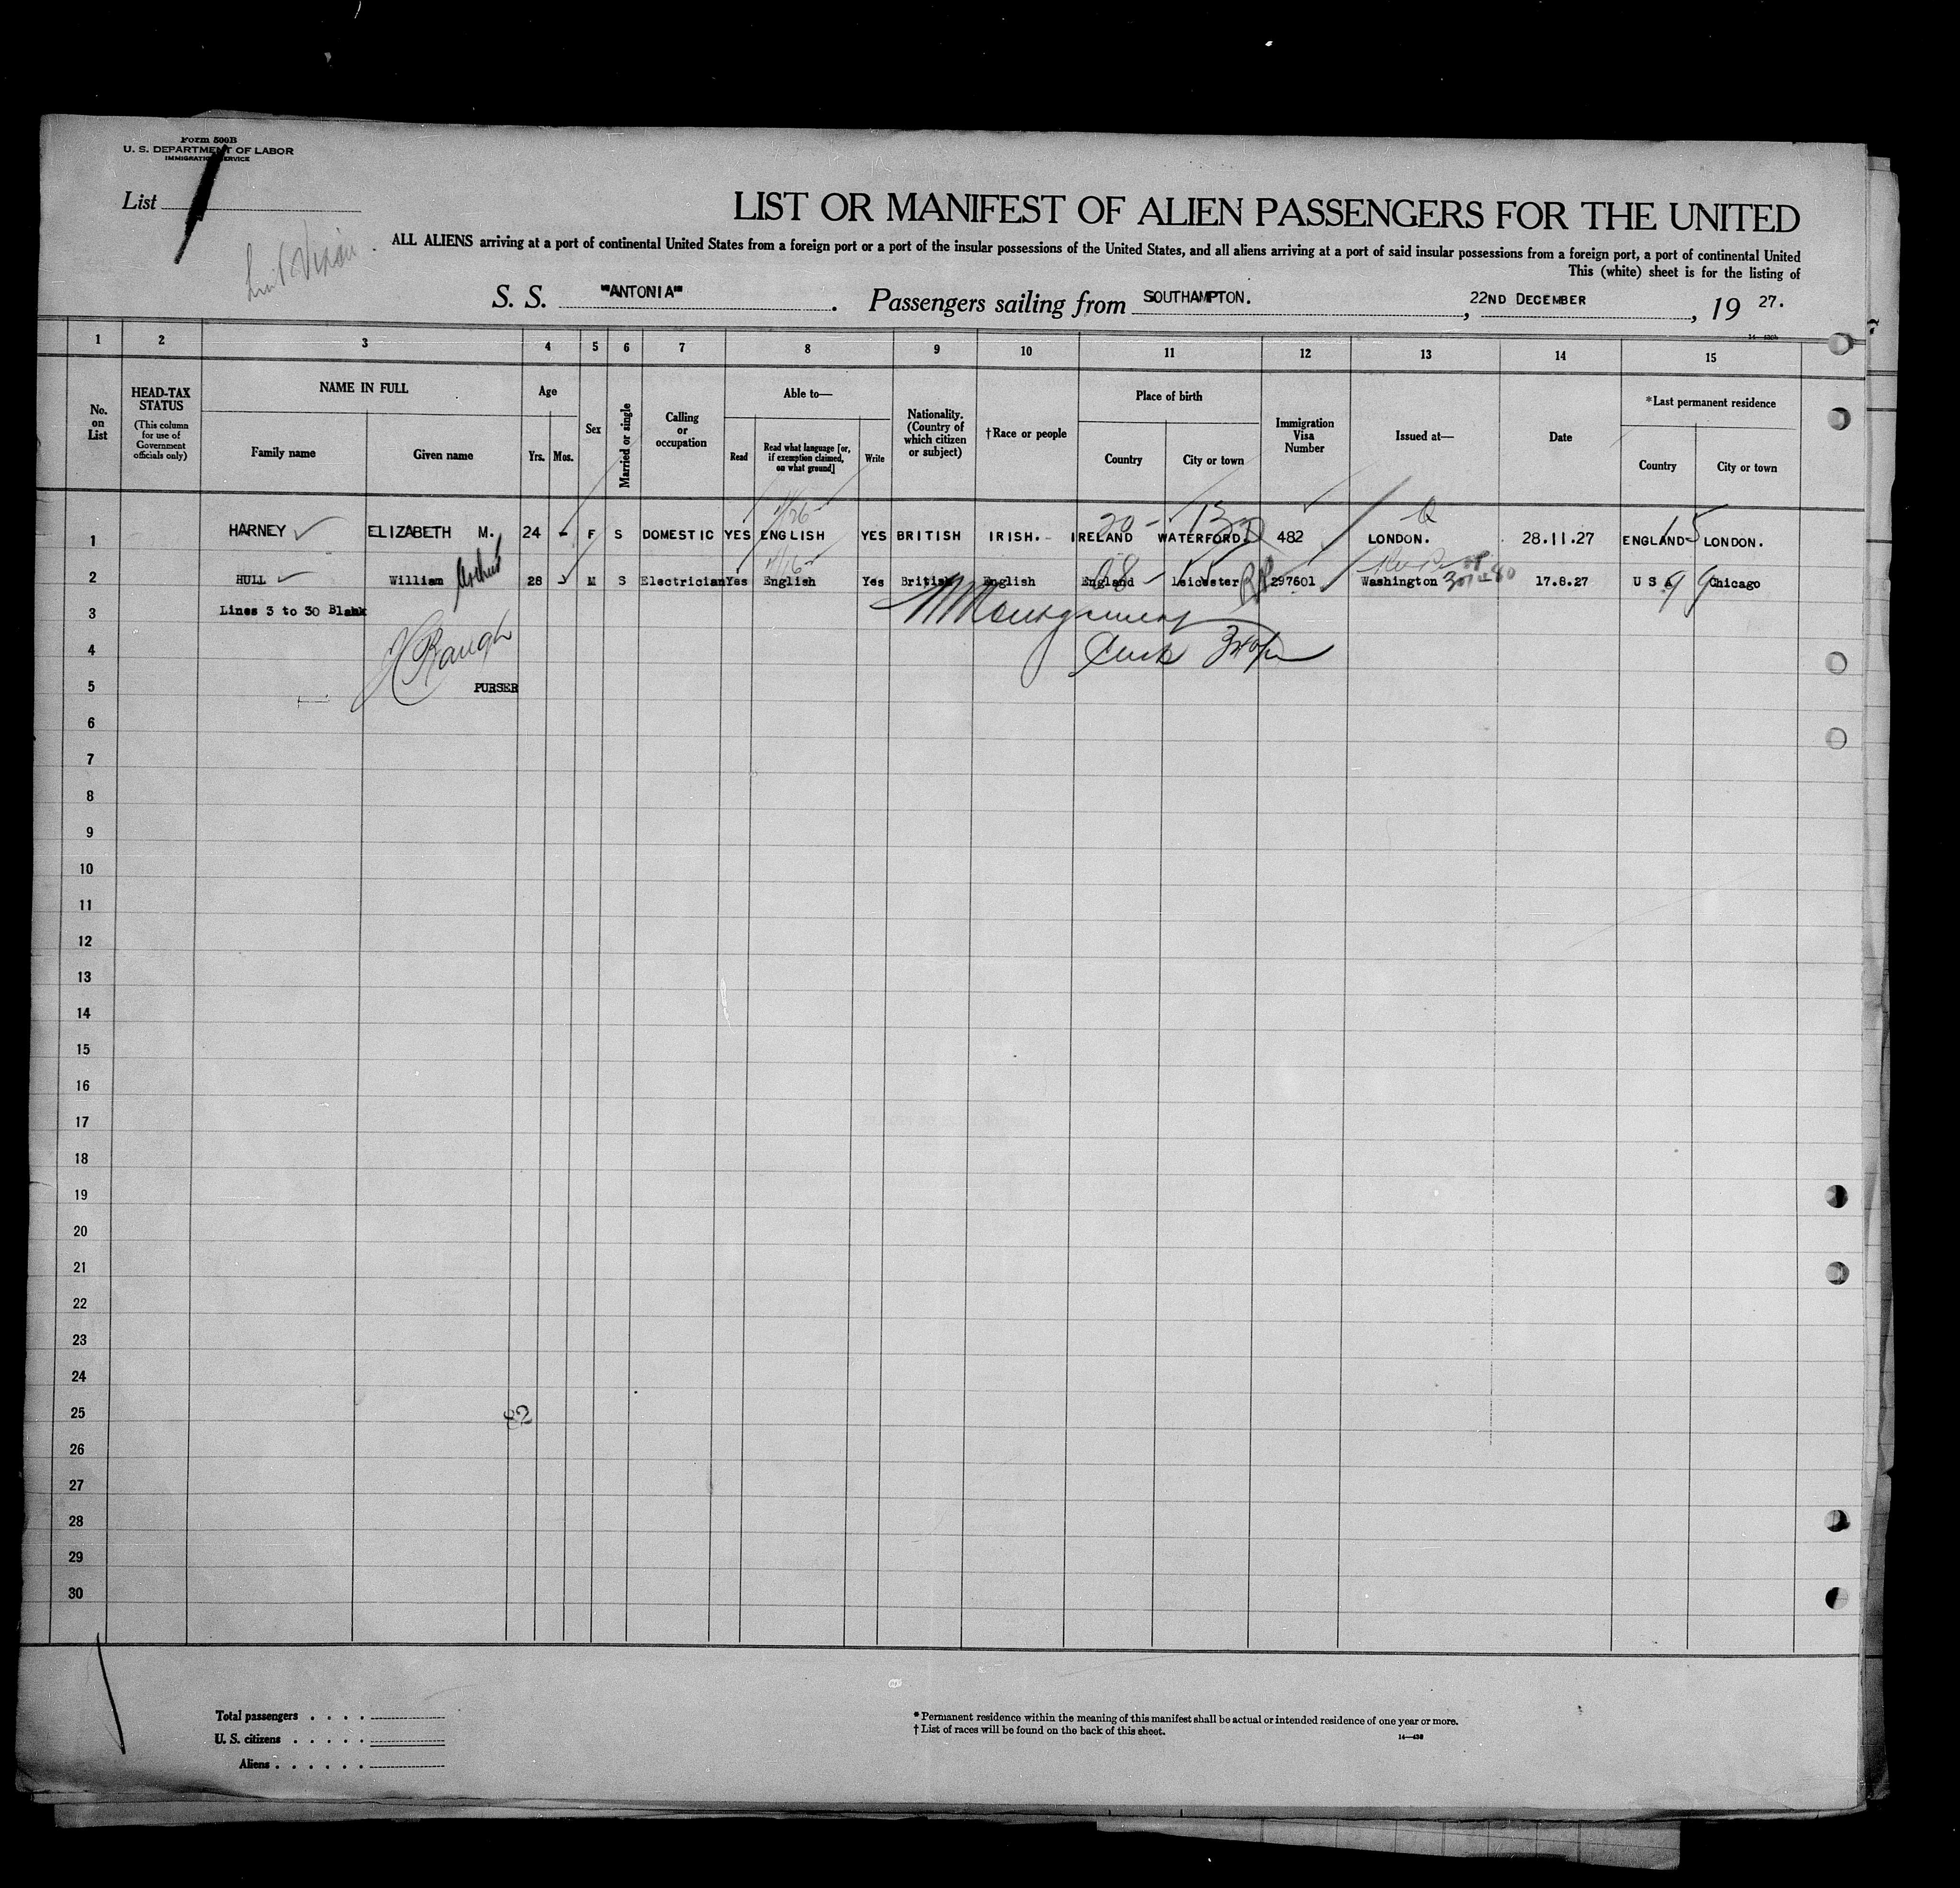 Form 500B
U. S. DEPARTMENT OF LABOR
IMMIGRATION SERVICE
List
LIST OR MANIFEST OF ALIEN PASSENGERS FOR THE UNITED
ALL ALIENS arriving at a port of continental United States from a foreign port or a port of the insular possessions of the United States, and all aliens arriving at a port of said insular possessions from a foreign port, a port of continental United
This (white) sheet is for the listing of
S. S. "ANTONIA". Passengers sailing from SOUTHAMPTON., 22ND DECEMBER, 19 27.
1 2 3 4 5 6 7 8 9 10 11 12 13 14 15
No. on List
HEAD-TAX STATUS (This column for use of Government officials only)
NAME IN FULL
Family name
Given name
Age
Yrs. Mos.
Sex
Married or single
Calling or occupation
Able to—
Read
Read what language [or, if exemption claimed, on what ground]
Write
Nationality. (Country of which citizen or subject)
†Race or people
Place of birth
Country
City or town
Immigration Visa Number
Issued at—
Date
*Last permanent residence
Country
City or town
1 HARNEY ELIZABETH M. 24 - F S DOMESTIC YES ENGLISH YES BRITISH IRISH. IRELAND WATERFORD. 482 LONDON. 28.11.27 ENGLAND LONDON.
2 HULL William Arthur 28 M S Electrician Yes English Yes British English England Leicester 297601 Washington 17.8.27 U S A Chicago
3 Lines 3 to 30 Blank
4
5 PURSER
6
7
8
9
10
11
12
13
14
15
16
17
18
19
20
21
22
23
24
25
26
27
28
29
30
Total passengers . . . .
U. S. citizens . . . . .
Aliens . . . . . .
* Permanent residence within the meaning of this manifest shall be actual or intended residence of one year or more.
† List of races will be found on the back of this sheet.
14—430